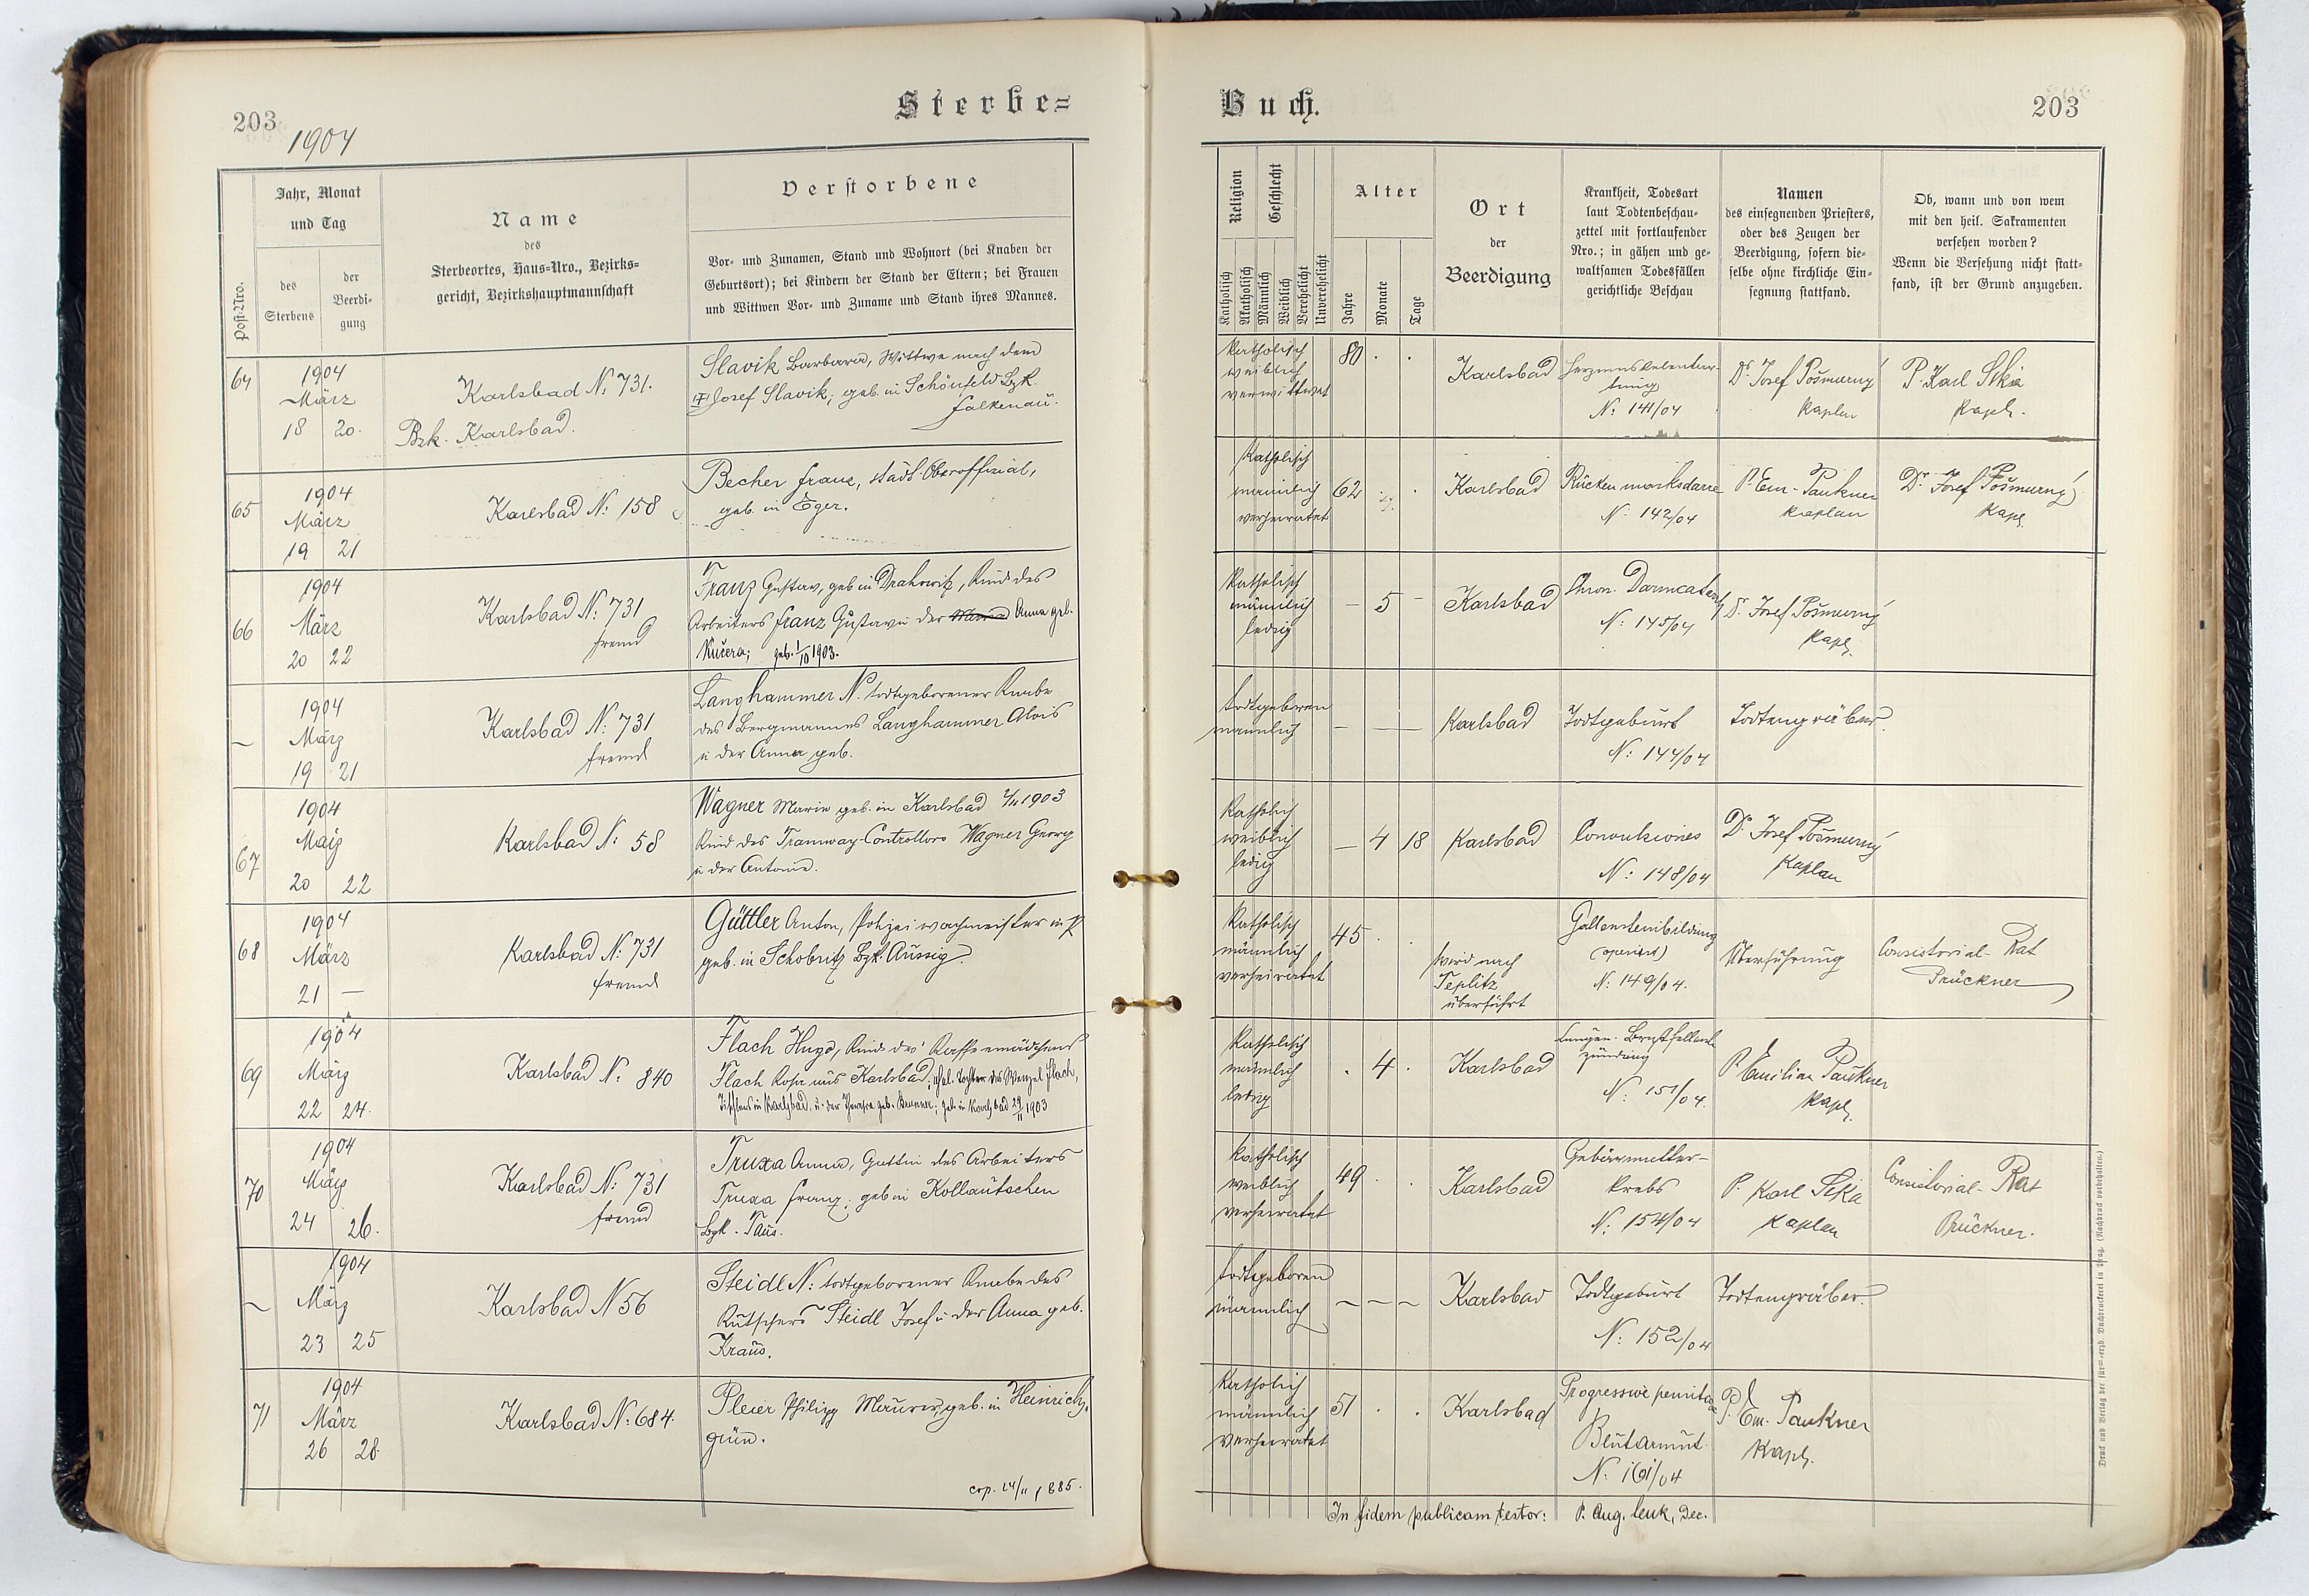 203
1904
Sterbe=
Post-Nro.
Jahr, Monat
und Tag
des
Sterbens
der
Beerdi-
gung
Name
des
Sterbeortes, Haus-Nro., Bezirks=
gericht, Bezirkshauptmannschaft
Verstorbene
Vor- und Zunamen, Stand und Wohnort (bei Knaben der
Geburtsort); bei Kindern der Stand der Eltern; bei Frauen
und Wittwen Vor- und Zuname und Stand ihres Mannes.
64
1904
März
18 20.
Karlsbad N: 731.
Bzk. Karlsbad.
Slavik Barbara, Wittwe nach dem
Josef Slavik; geb. in Schönfeld Bzk.
Falkenau.
65
1904
März
19 21
Karlsbad N: 158
Becher Franz, städt. Oberoffizial,
geb. in Eger.
66
1904
März
20 22
Karlsbad N: 731
fremd
Franz Gustav, geb in Drahowitz, Kind des
Arbeiters Franz Gustav u der Anna geb.
Kučera; geb. 1/10 1903.
–
1904
März
19 21
Karlsbad N: 731
fremd
Langhammer N. todtgeborener Knabe
des Bergmannes Langhammer Alois
u der Anna geb.
67
1904
März
20 22
Karlsbad N: 58
Wagner Marie geb. in Karlsbad 2/11 1903
Kind des Tramway-Controllors Wagner Georg
u der Antonie.
68
1904
März
21 –
Karlsbad N: 731
fremd
Güttler Anton, Polizeiwachmeister in P
geb. in Schobritz Bzk. Aussig.
69
1904
März
22 24.
Karlsbad N: 840
Flach Hugo, Kind des Kaffeemädchens
Flach Rosa aus Karlsbad; ehel. Tochter des Wenzel Flach,
in Karlsbad, u. der Theresia geb. Brunner; geb. in Karlsbad 29/11 1903
70
1904
März
24 26.
Karlsbad N: 731
fremd
Truxa Anna, Gattin des Arbeiters
Truxa Franz; geb in Kollautschen
Bzk. Taus.
–
1904
März
23 25
Karlsbad N 56
Steidl N: todtgeborener Knabe des
Kutschers Steidl Josef u der Anna geb.
Kraus.
71
1904
März
26 28.
Karlsbad N: 684.
Pleier Philipp Maurer, geb. in Heinrichs-
grün.
cop. 24/11 1885.
Buch.
203
Religion
Geschlecht
Katholisch
Akatholisch
Männlich
Weiblich
Verehelicht
Unverehelicht
Alter
Jahre
Monate
Tage
Ort
der
Beerdigung
Krankheit, Todesart
laut Todtenbeschau-
zettel mit fortlaufender
Nro.; in gähen und ge-
waltsamen Todesfällen
gerichtliche Beschau
Namen
des einsegnenden Priesters,
oder des Zeugen der
Beerdigung, sofern die-
selbe ohne kirchliche Ein-
segnung stattfand.
Ob, wann und von wem
mit den heil. Sakramenten
versehen worden?
Wenn die Versehung nicht statt-
fand, ist der Grund anzugeben.
katholisch
weiblich
verwittwet
80 . .
Karlsbad
N: 141/04
Dr. Josef Pošmurný
Kaplan
P. Karl Sika
Kapl.
Katholisch
männlich
verheiratet
62
Karlsbad
Rückenmarksdarre
N: 142/04
P. Em. Paukner
Kaplan
Dr. Josef Pošmurný
Kapl.
Katholisch
männlich
ledig
– 5 –
Karlsbad
Chron. Darmcatarrh
N: 145/04
Dr. Josef Pošmurný
Kapl.
todtgeboren
männlich
– – –
Karlsbad
Todtgeburt
N: 144/04
Todtengräber.
Katholich
weiblich
ledig
– 4 18
Karlsbad
Convulsiones
N: 148/04
Dr. Josef Pošmurný
Kaplan
Katholisch
männlich
verheiratet
45 . .
wird nach
Teplitz
überführt
Gallensteinbildung
(operiert)
N: 149/04.
Überführung
Consistorial-Rat
Prückner
Katholisch
männlich
ledig
. 4 .
Karlsbad
Lungen- Brustfellent-
zündung
N: 151/04.
P. Emilian Paukner
Kapl.
katholisch
weiblich
verheiratet
49 . .
Karlsbad
Gebärmutter-
krebs
N: 154/04
P. Karl Sika
Kaplan
Consistorial-Rat
Prückner.
todtgeboren
männlich
– – –
Karlsbad
Todtgeburt
N: 152/04
Todtengräber.
Katholich
männlich
verheiratet
51 . .
Karlsbad
Progressive
Blutarmut.
N: 161/04
P. Em. Paukner
Kapl.
In fidem publicam testor: P. Aug. Leuk, Dec.
Druck und Verlag der fürst-erzb. Buchdruckerei in Prag. (Nachdruck vorbehalten.)